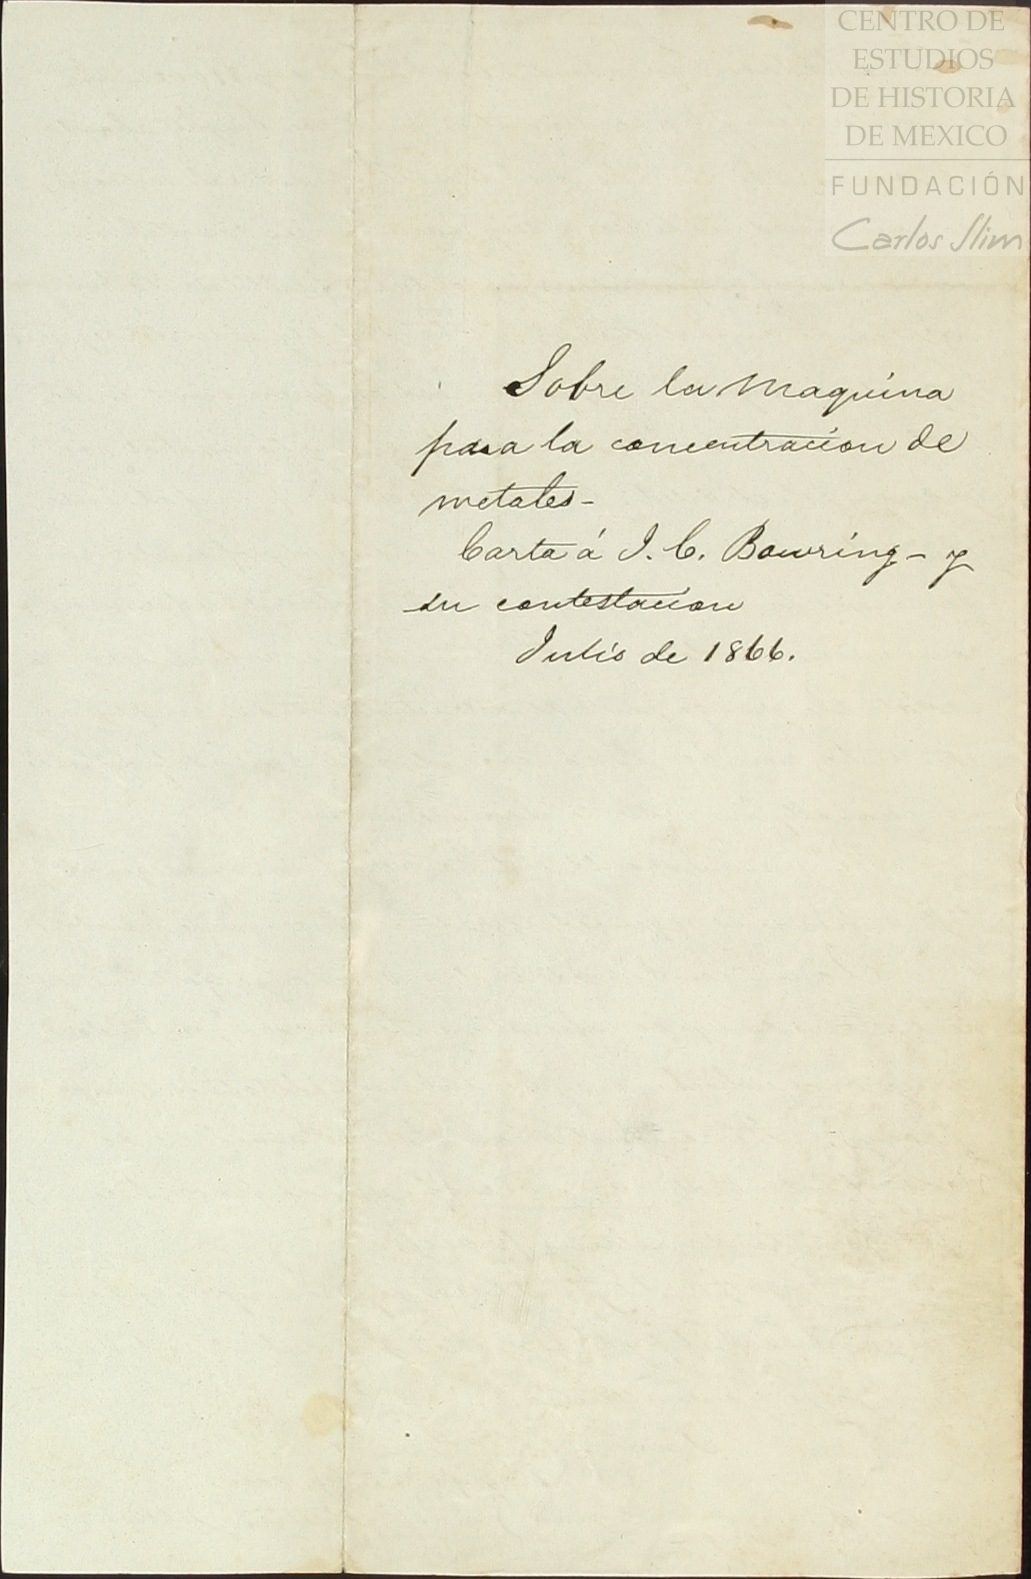 CENTRO DE
ESTUDIOS
DE HISTORIA
DE MEXICO
FUNDACIÓN
Carlos Slim
Sobre la maquina
para la concentracion de
metales-
Carta á J. C. Bowring - y
su contestacion
Julio de 1866.